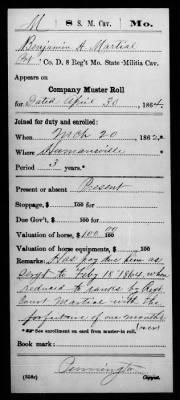 M 8 S. M. Cav. Mo.
Benjamin A. Martial
Pvt, Co. D, 8 Reg't Mo. State Militia Cav.
Appears on
Company Muster Roll
for Dated April 30, 1864.
Joined for duty and enrolled:
When Mch 20, 1862.*
Where Humansville
Period 3 years.*
Present or absent Present
Stoppage, $ 100 for
Due Gov't, $ 100 for
Valuation of horse, $ 100 00/100
Valuation of horse equipments, $ 100
Remarks: Has pay due him as
Sergt to Feby 18 1864, when
reduced to ranks by Regt
Court Martial with the
forfeiture of one months
*See enrollment on card from muster-in roll. (over)
Book mark:
Pennington
(858c) Copyist.